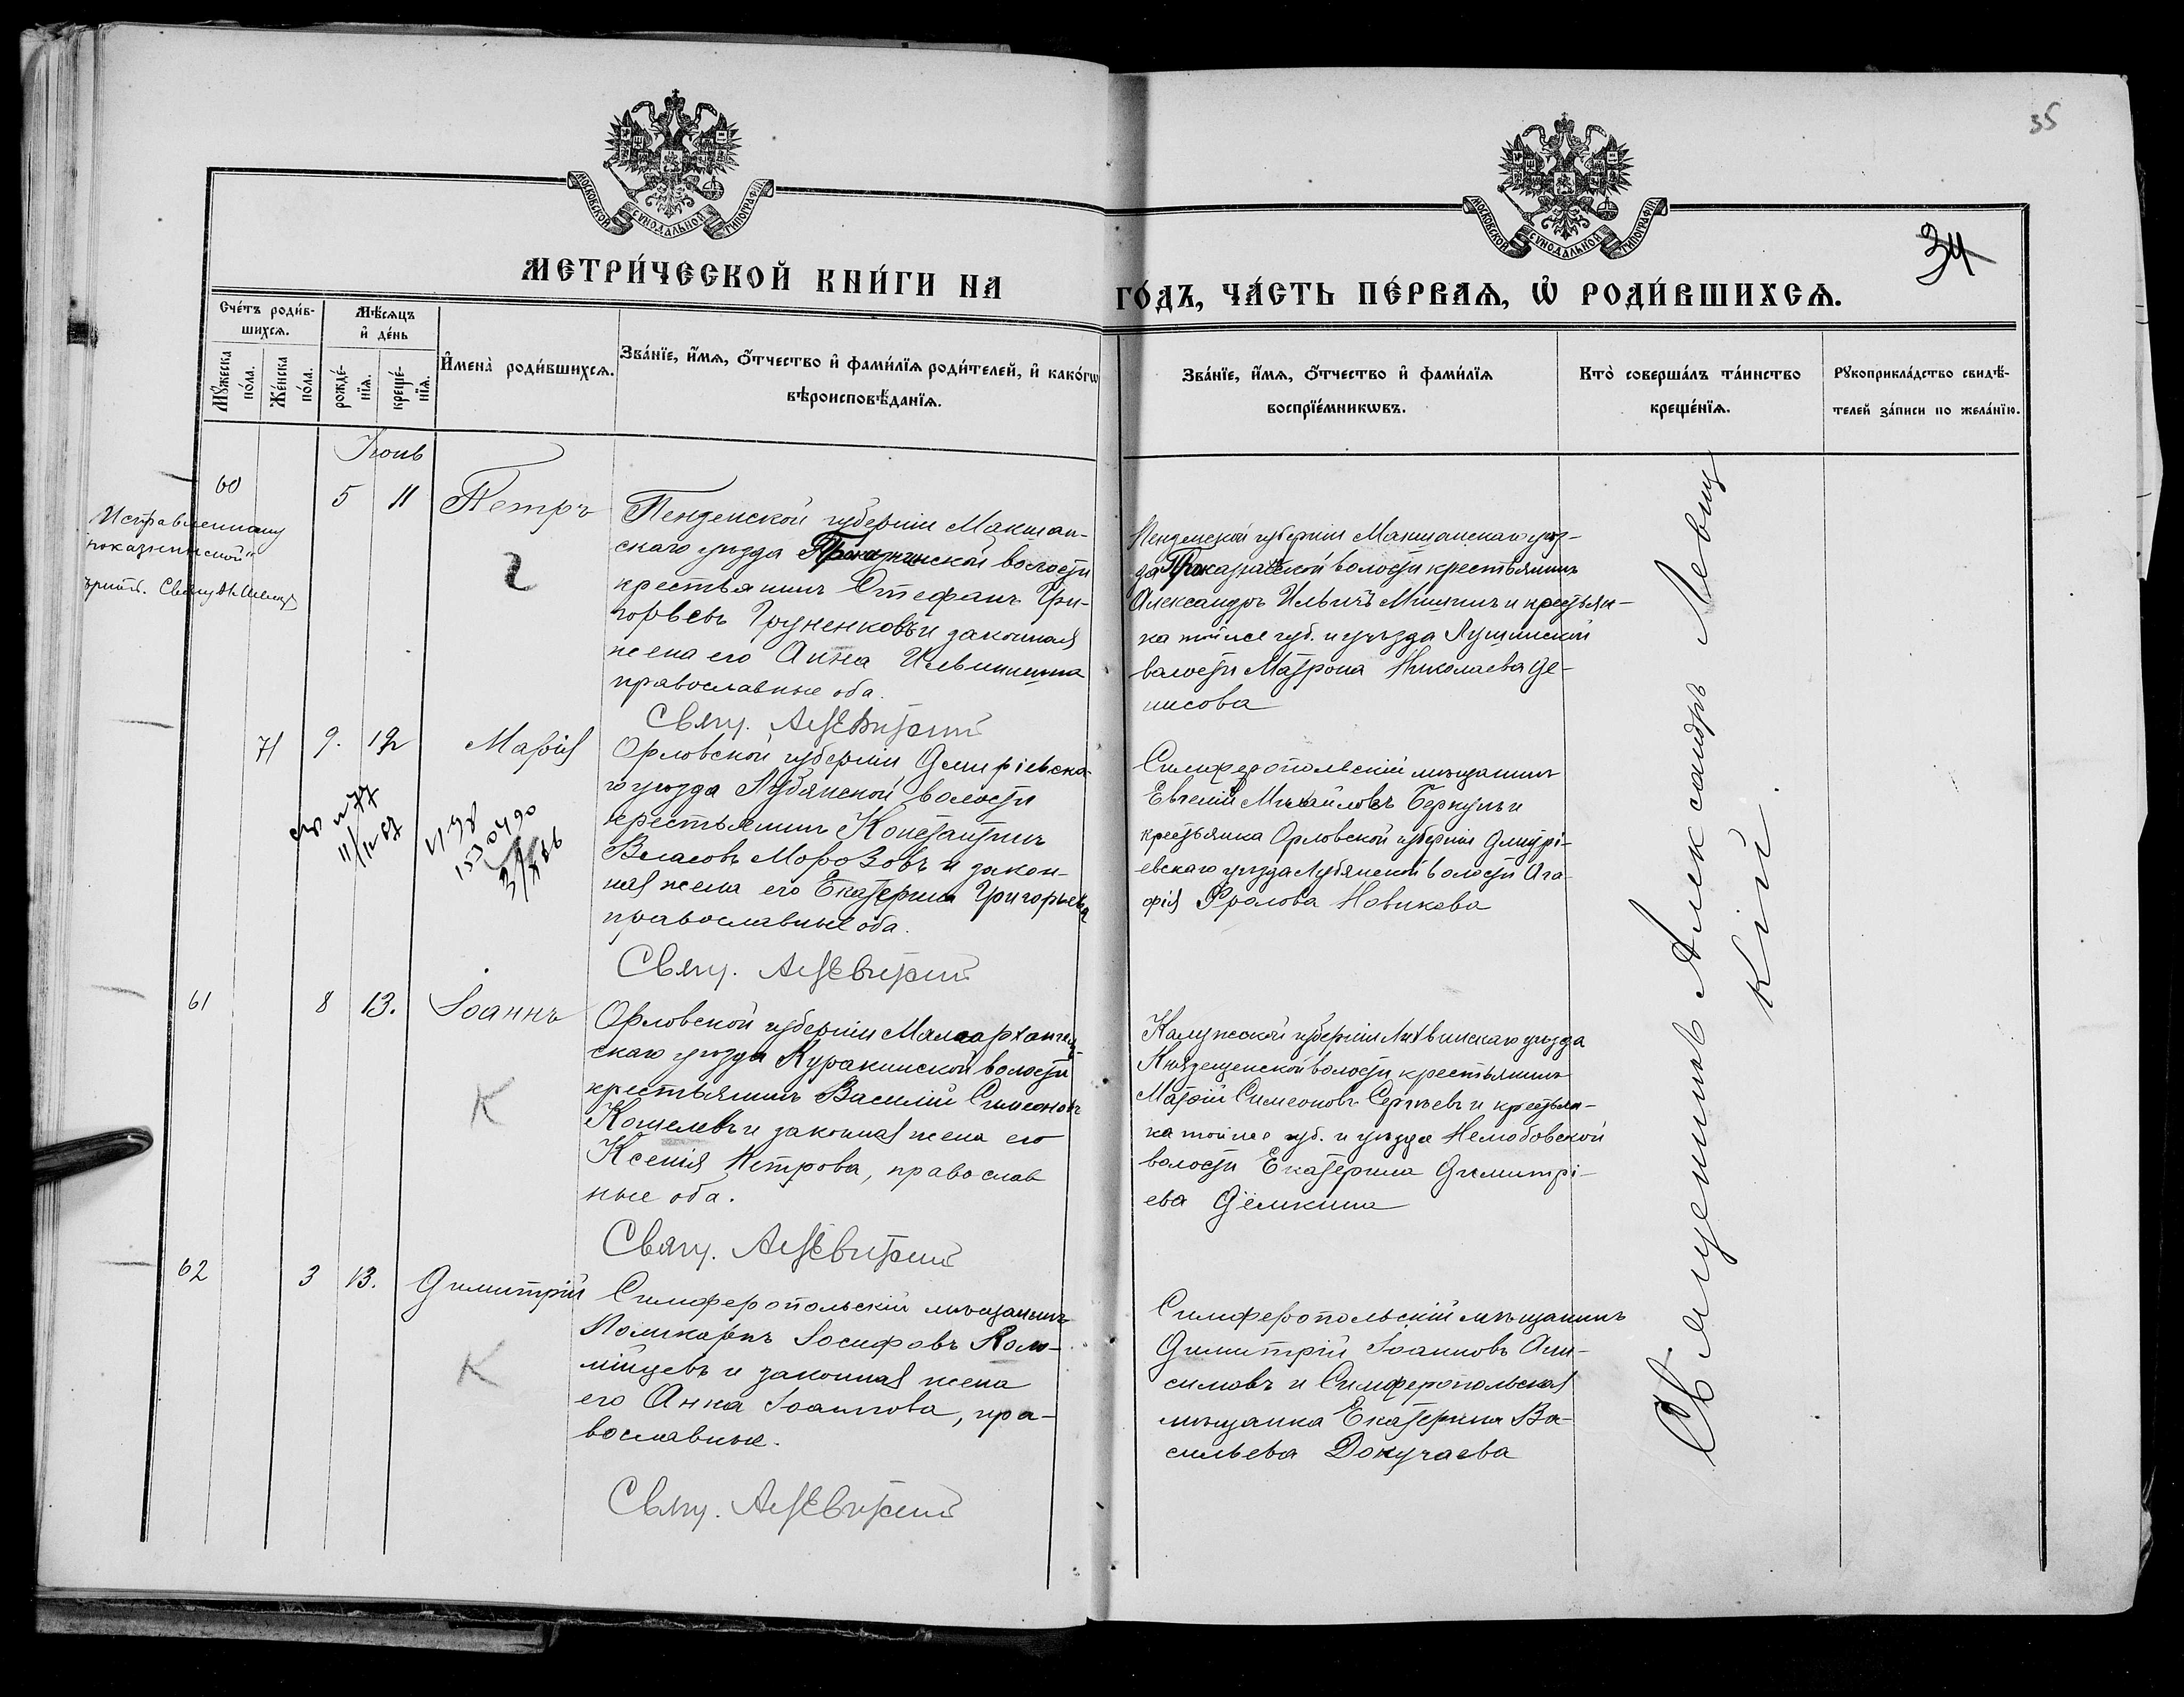 35
34
МОСКОВСКОЙ СѴНОДАЛЬНОЙ ТИПОГРАФІИ
МОСКОВСКОЙ СѴНОДАЛЬНОЙ ТИПОГРАФІИ
МЕТРИ́ЧЕСКОЙ КНИ́ГИ НА
ГО́ДЪ, ЧА́СТЬ ПЕ́РВАѦ, Ѡ҆ РОДИ́ВШИХСѦ.
Сче́тъ роди́в-
шихсѧ.
Мꙋ́жеска
по́ла.
Же́нска
по́ла.
Мѣ́сѧцъ
и҆ де́нь
рожде́-
нїѧ.
креще́-
нїѧ.
И҆мена̀ роди́вшихсѧ.
Зва́нїе, и҆́мѧ, ѻ҆́тчество и҆ фами́лїѧ роди́телей, и҆ како́гѡ
вѣроисповѣ́данїѧ.
Зва́нїе, и҆́мѧ, ѻ҆́тчество и҆ фами́лїѧ
воспрїе́мникѡвъ.
Кто̀ соверша́лъ та́инство
креще́нїѧ.
Рꙋкоприкла́дство свидѣ́-
телей за́писи по жела́нїю.
Іюнь
60
5 11
Петръ
2
Исправленному
"Пензенской губерніи Мокшан-
скаго уѣзда
волости
крестьянинъ Стефанъ Гри-
горьевъ Груненковъ и законная
жена его Анна Ильинишна
православные оба.
Свящ. А. Левитскій
Пензенской губерніи Мокшанскаго уѣз-
да
волости крестьянинъ
Александръ Ильичъ Мишинъ и крестьян-
ка той же губ. и уѣзда Лушинской
волости Матрона Николаева Де-
нисова
71 9. 12
Марія
Орловской губерніи Дмитріевска-
го уѣзда Лубянской волости
крестьянинъ Константинъ
Власовъ Морозовъ и закон-
ная жена его Екатерина Григорьева
православные оба.
Свящ. А. Левитскій
Симферопольскій мѣщанинъ
Евгеній Михайловъ Беркунъ и
крестьянка Орловской губерніи Дмитрі-
евскаго уѣзда Лубянской волости Ага-
фія Фролова Новикова
61
8 13.
Іоаннъ
К
Орловской губерніи Малоархангель-
скаго уѣзда Куракинской волости
крестьянинъ Василій Симеоновъ
Кошелевъ и законная жена его
Ксенія Петрова, православ
ные оба.
Свящ. А. Левитскій
Калужской губерніи Лихвинскаго уѣзда
Князещенской волости крестьянинъ
Матѳій Симеоновъ Сергѣевъ и крестьян-
ка той же губ. и уѣзда Нелюбовской
волости Екатерина Димитрі-
ева Дёмкина
62
3 13.
Димитрій
К
Симферопольскій мѣщанинъ
Поликарпъ Іосифовъ Коло-
мійцевъ и законная жена
его Анна Іоаннова, пра-
вославные.
Свящ. А. Левитскій
Симферопольскій мѣщанинъ
Димитрій Іоанновъ Ани-
симовъ и Симферопольская
мѣщанка Екатерина Ва-
сильева Докучаева
Священникъ Александръ Левит
скій.